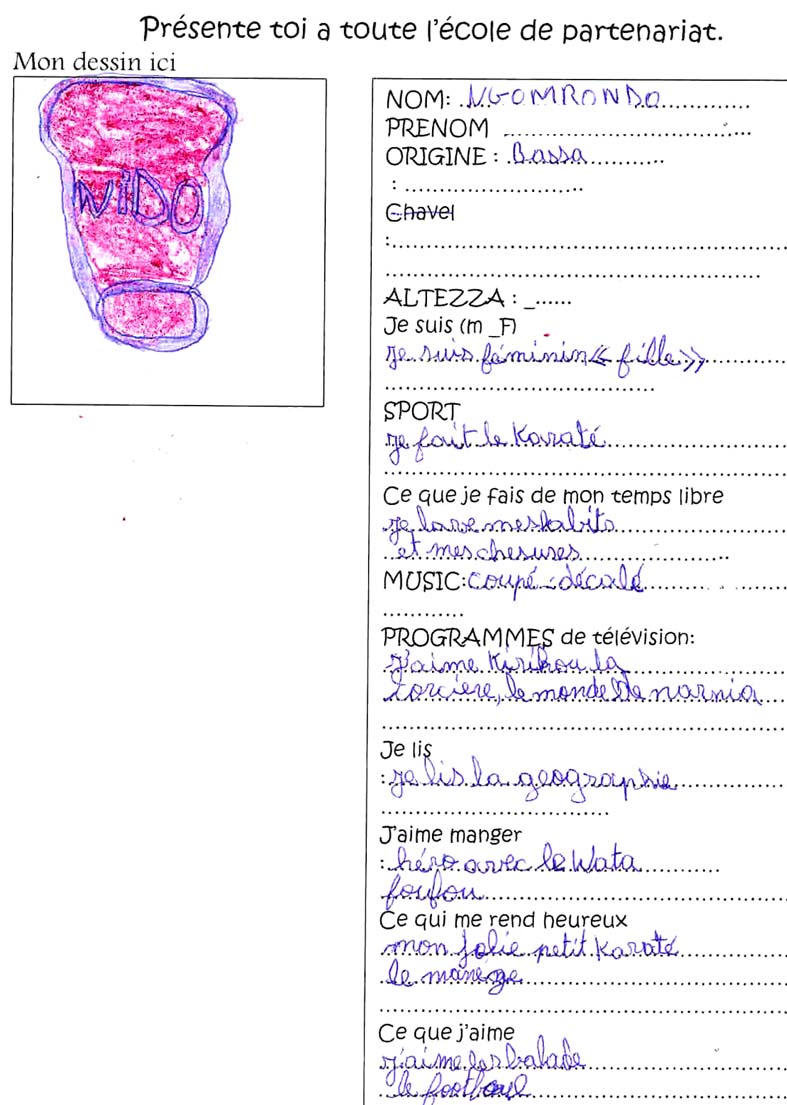 Présente toi a toute l'école de partenariat.
Mon dessin ici
WiDO
NOM: NGOMRONDO
PRENOM
ORIGINE : Bassa
:
Chavel
:
ALTEZZA : _
Je suis (m _F)
je suis féminin « fille »
SPORT
je fait le Karaté
Ce que je fais de mon temps libre
je lave mes habits
et mes chesures
MUSIC: coupé-décalé
PROGRAMMES de télévision:
J'aime Kirikou la
sorcière, le monde de narnia
Je lis
: je lis la geographie
J'aime manger
: héro avec le Wata
foufou
Ce qui me rend heureux
mon jolie petit Karaté
le manège
Ce que j'aime
j'aime les balade
le football